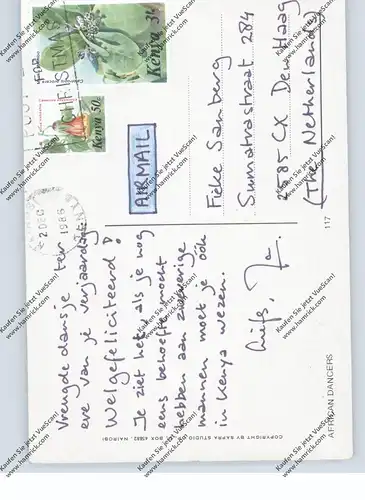 Vreugdedansje ter
ere van je verjaardag.
Welgefeliciteerd!
Je ziet het, als je nog
eens behoefte mocht
hebben aan zwoerige
mannen moet je ook
in Kenya wezen.
Liefs,
AIRMAIL
Fieke Samberg
Sumatrastraat 284
2585 CX Den Haag
(The Netherlands)
Kenya 3/-
Kenya 50c
2 DEC
1986
COPYRIGHT BY SAPRA STUDIO BOX 45882 NAIROBI
AFRICAN DANCERS
117
Kaufen Sie jetzt VueScan!
www.hamrick.com